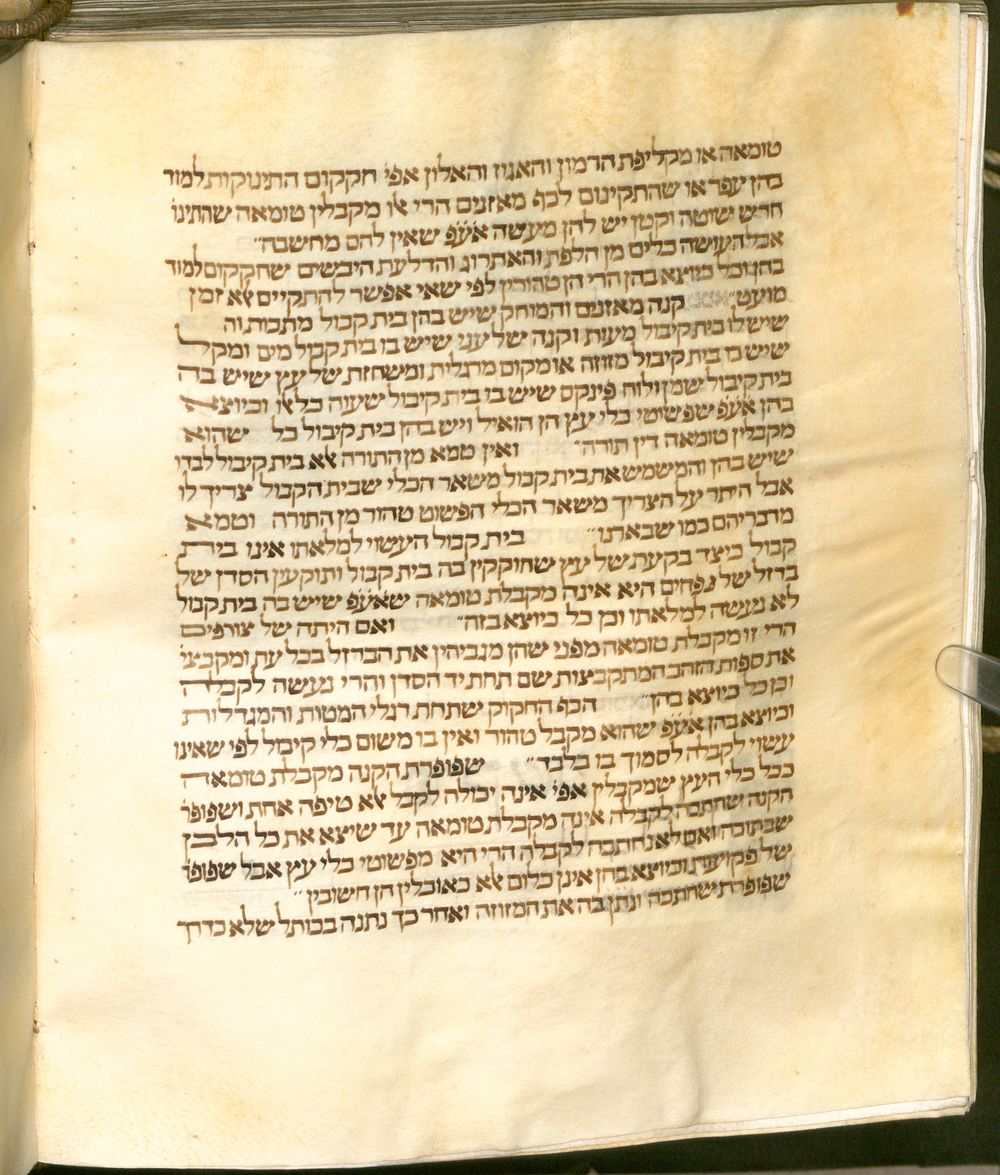 טומאה או מקליפת הרמון והאגוז והאלון אפי' חקקום התינוקות למוד
בהן עפר או שהתקינום לכף מאזנים הרי אלו מקבלין טומאה שהתינו
חרש שוטה וקטן יש להן מעשה אע״פ שאין להם מחשבה״
אבל העושה כלים מן הלפת והאתרוג והדלעת היבשים שחקקום למוד
בהן וכל כיוצא בהן הרי הן טהורין לפי שאי אפשר להתקיים אלא זמן
מועט״ קנה מאזנים והמוחק שיש בהן בית קבול מתכות וה
שיש לו בית קיבול מעות וקנה של עני שיש בו בית קבול מים ומקל
שיש בו בית קיבול מזוזה או מקום מרגלית ומשחזת של עץ שיש בה
בית קיבול שמן ולוח פינקס שיש בו בית קיבול שעוה כל אלו וכיוצא
בהן אע״פ שפשוטי כלי עץ הן הואיל ויש בהן בית קיבול כל שהוא
מקבלין טומאה דין תורה״ ואין טמא מן התורה אלא בית קיבול לבדו
שיש בהן והמשמש את בית קבול משאר הכלי שבית הקבול צריך לו
אבל היתר על הצריך משאר הכלי הפשוט טהור מן התורה וטמא
מדבריהם כמו שבארנו״ בית קבול העשוי למלאתו אינו בית
קבול כיצד בקעת של עץ שחוקקין בה בית קבול ותוקעין הסדן של
ברזל של נפחים היא אינה מקבלת טומאה שאע״פ שיש בה בית קבול
לא נעשה למלאתו וכן כל כיוצא בזה״ ואם היתה של צורפים
הרי זו מקבלת טומאה מפני שהן מגביהין את הברזל בכל עת ומקבצי'
את ספות הזהב המתקבצות שם תחת יד הסדן והרי נעשה לקבלה
וכן כל כיוצא בהן״ הכף החקוק שתחת רגלי המטות והמגדלות
וכיוצא בהן אע״פ שהוא מקבל טהור ואין בו משום כלי קיבול לפי שאינו
עשוי לקבלה לסמוך בו בלבד״ שפופרת הקנה מקבלת טומאה
ככל כלי העץ שמקבלין אפי' אינה יכולה לקבל אלא טיפה אחת ושפופר'
הקנה שחתכה לקבלה אינה מקבלת טומאה עד שיצא את כל הלבן
שבתוכה ואם לא נחתכה לקבלה הרי היא מפשוטי כלי עץ אבל שפופר'
של פקועות וכיוצא בהן אינן כלום אלא כאוכלין הן חשובין״
שפופרת שחתכה ונתן בה את המזוזה ואחר כך נתנה בכותל שלא כדרך